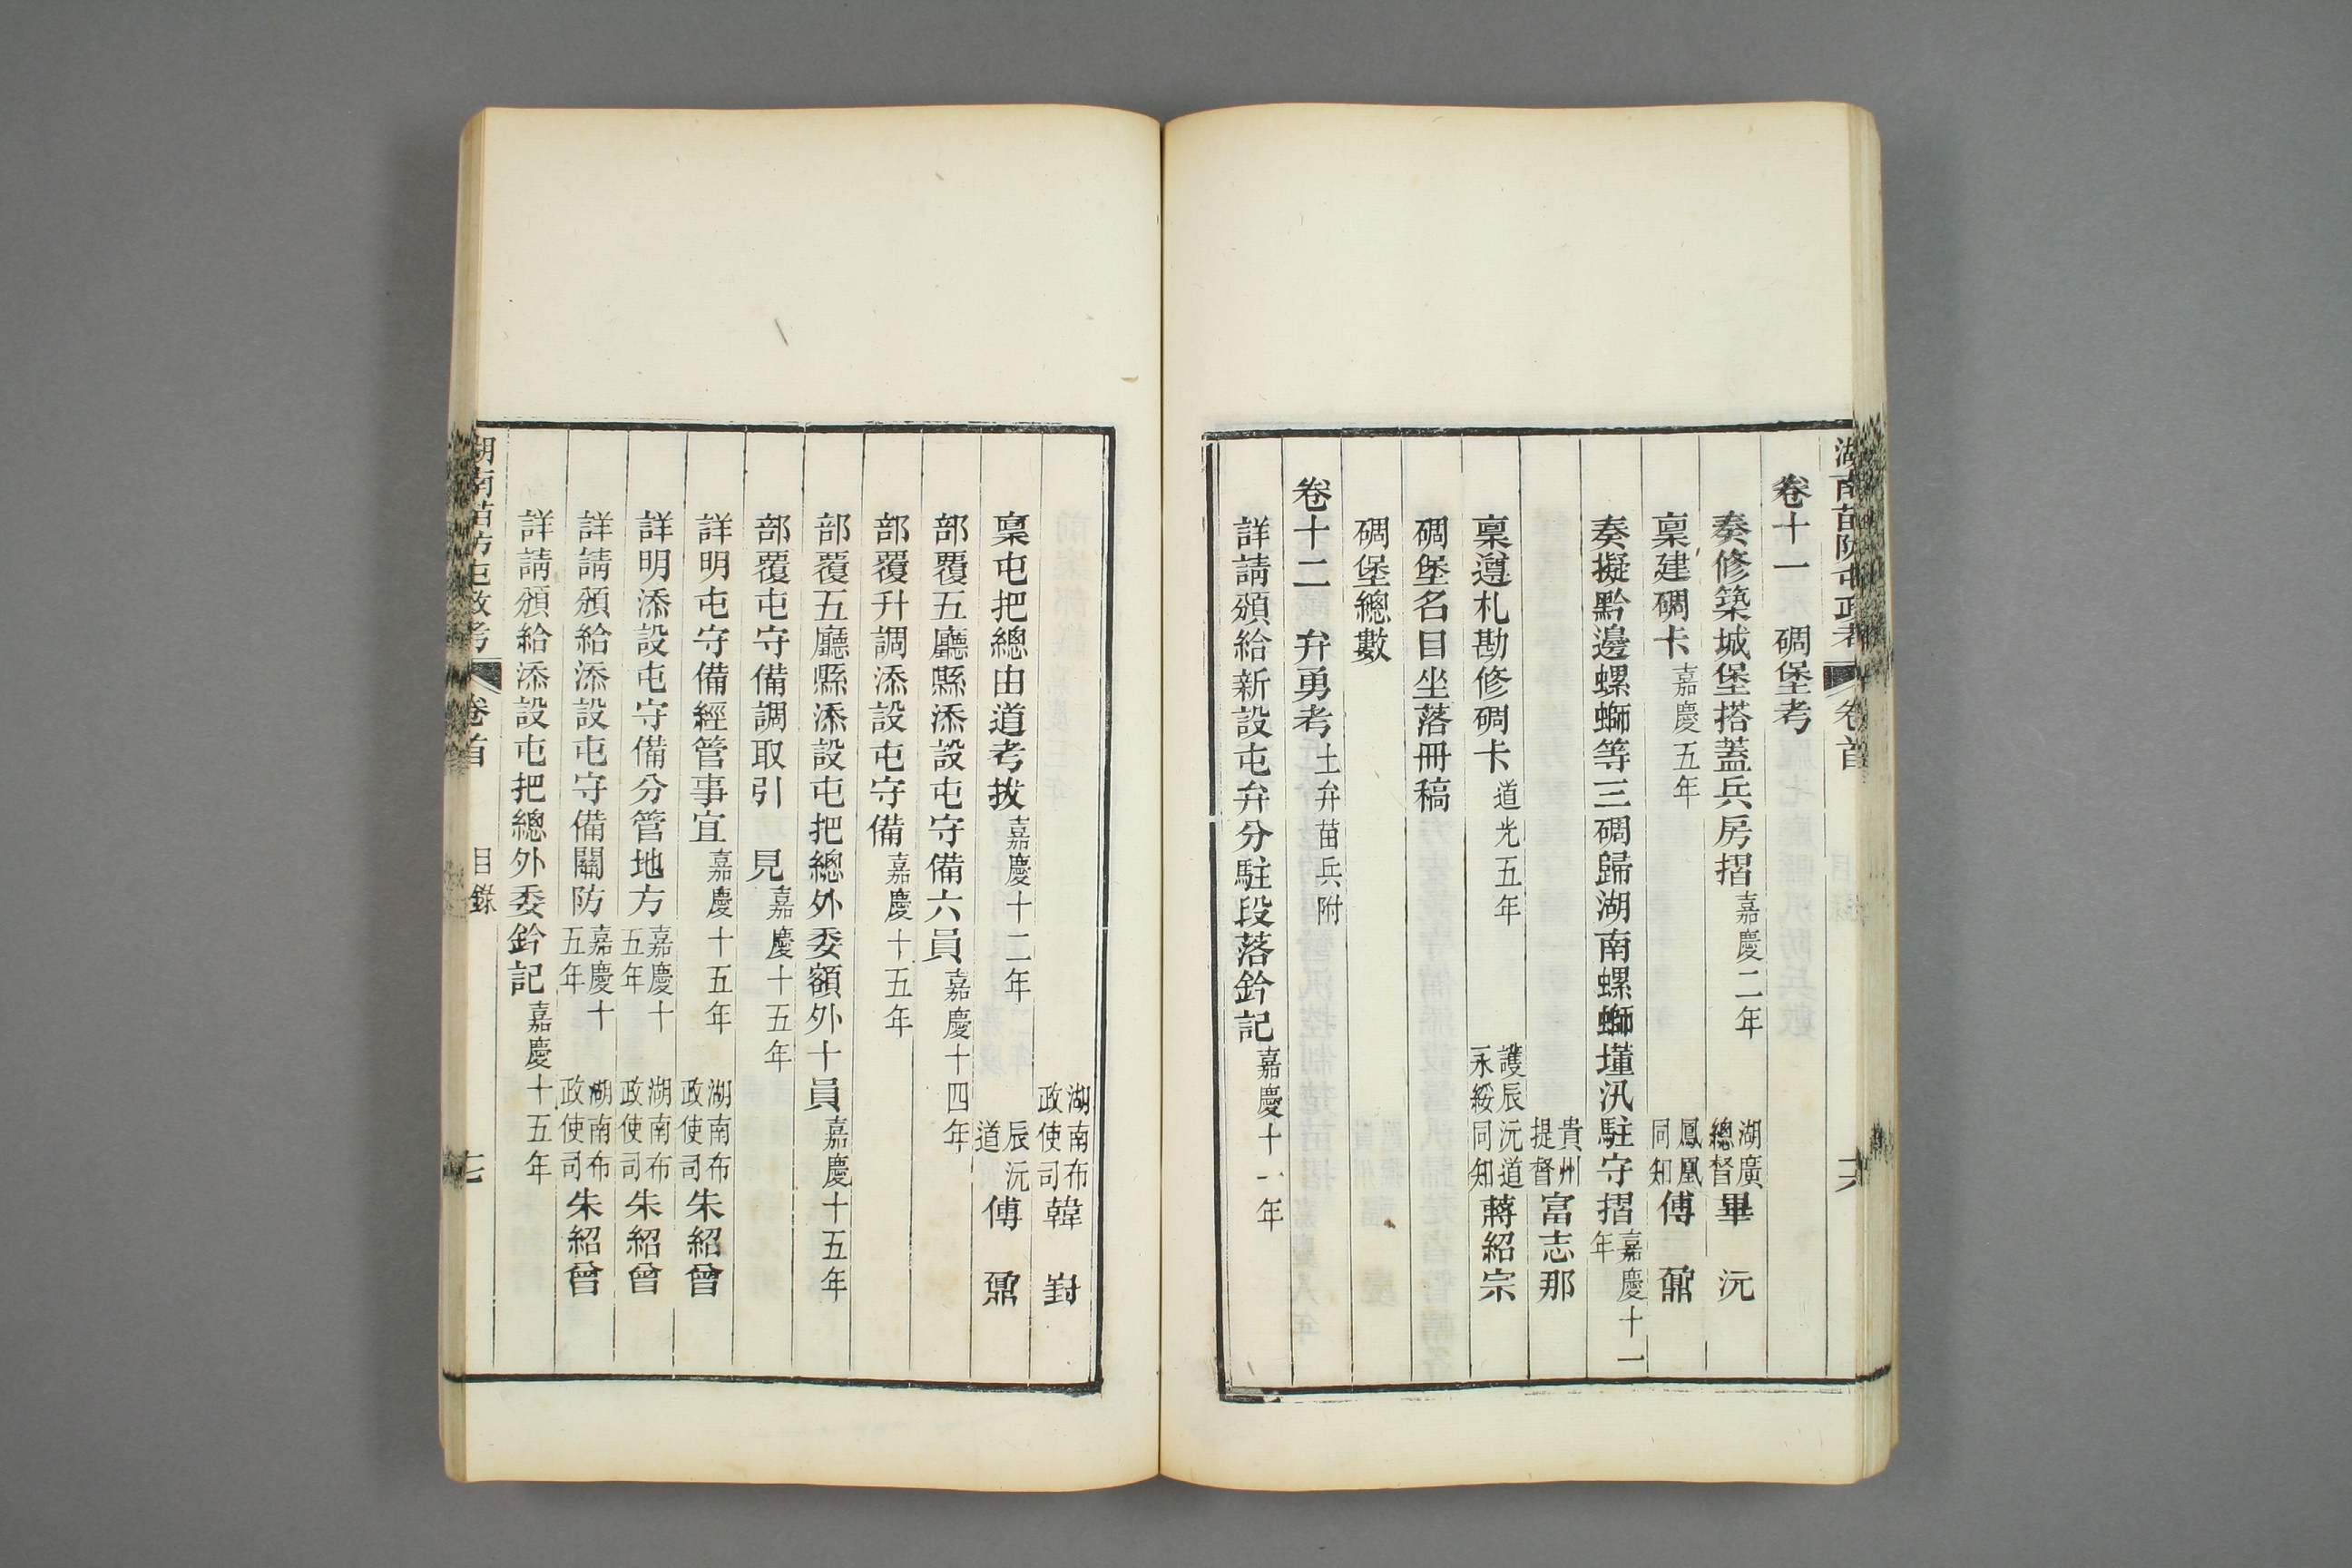 湖南苗防屯政考 卷首
卷十一 碉堡考
奏修築城堡搭蓋兵房摺 嘉慶二年 湖廣總督 畢 沅
稟建碉卡 嘉慶五年 鳳凰同知 傅 鼐
奏擬黔邊螺螄等三碉歸湖南螺螄墐汛駐守摺 嘉慶十一年
貴州提督 富志那
稟遵札勘修碉卡 道光五年 護辰沅道永綏同知 蔣紹宗
碉堡名目坐落冊稿
碉堡總數
卷十二 弁勇考 土弁苗兵附
詳請頒給新設屯弁分駐段落鈐記 嘉慶十一年
湖南布政使司 韓 崶
稟屯把總由道考拔 嘉慶十二年 辰沅道 傅 鼐
部覆五廳縣添設屯守備六員 嘉慶十四年
部覆升調添設屯守備 嘉慶十五年
部覆五廳縣添設屯把總外委額外十員 嘉慶十五年
部覆屯守備調取引 見 嘉慶十五年
詳明屯守備經管事宜 嘉慶十五年 湖南布政使司 朱紹曾
詳明添設屯守備分管地方 嘉慶十五年 湖南布政使司 朱紹曾
詳請頒給添設屯守備關防 嘉慶十五年 湖南布政使司 朱紹曾
詳請頒給添設屯把總外委鈐記 嘉慶十五年
湖南苗防屯政考 卷首 目錄 七